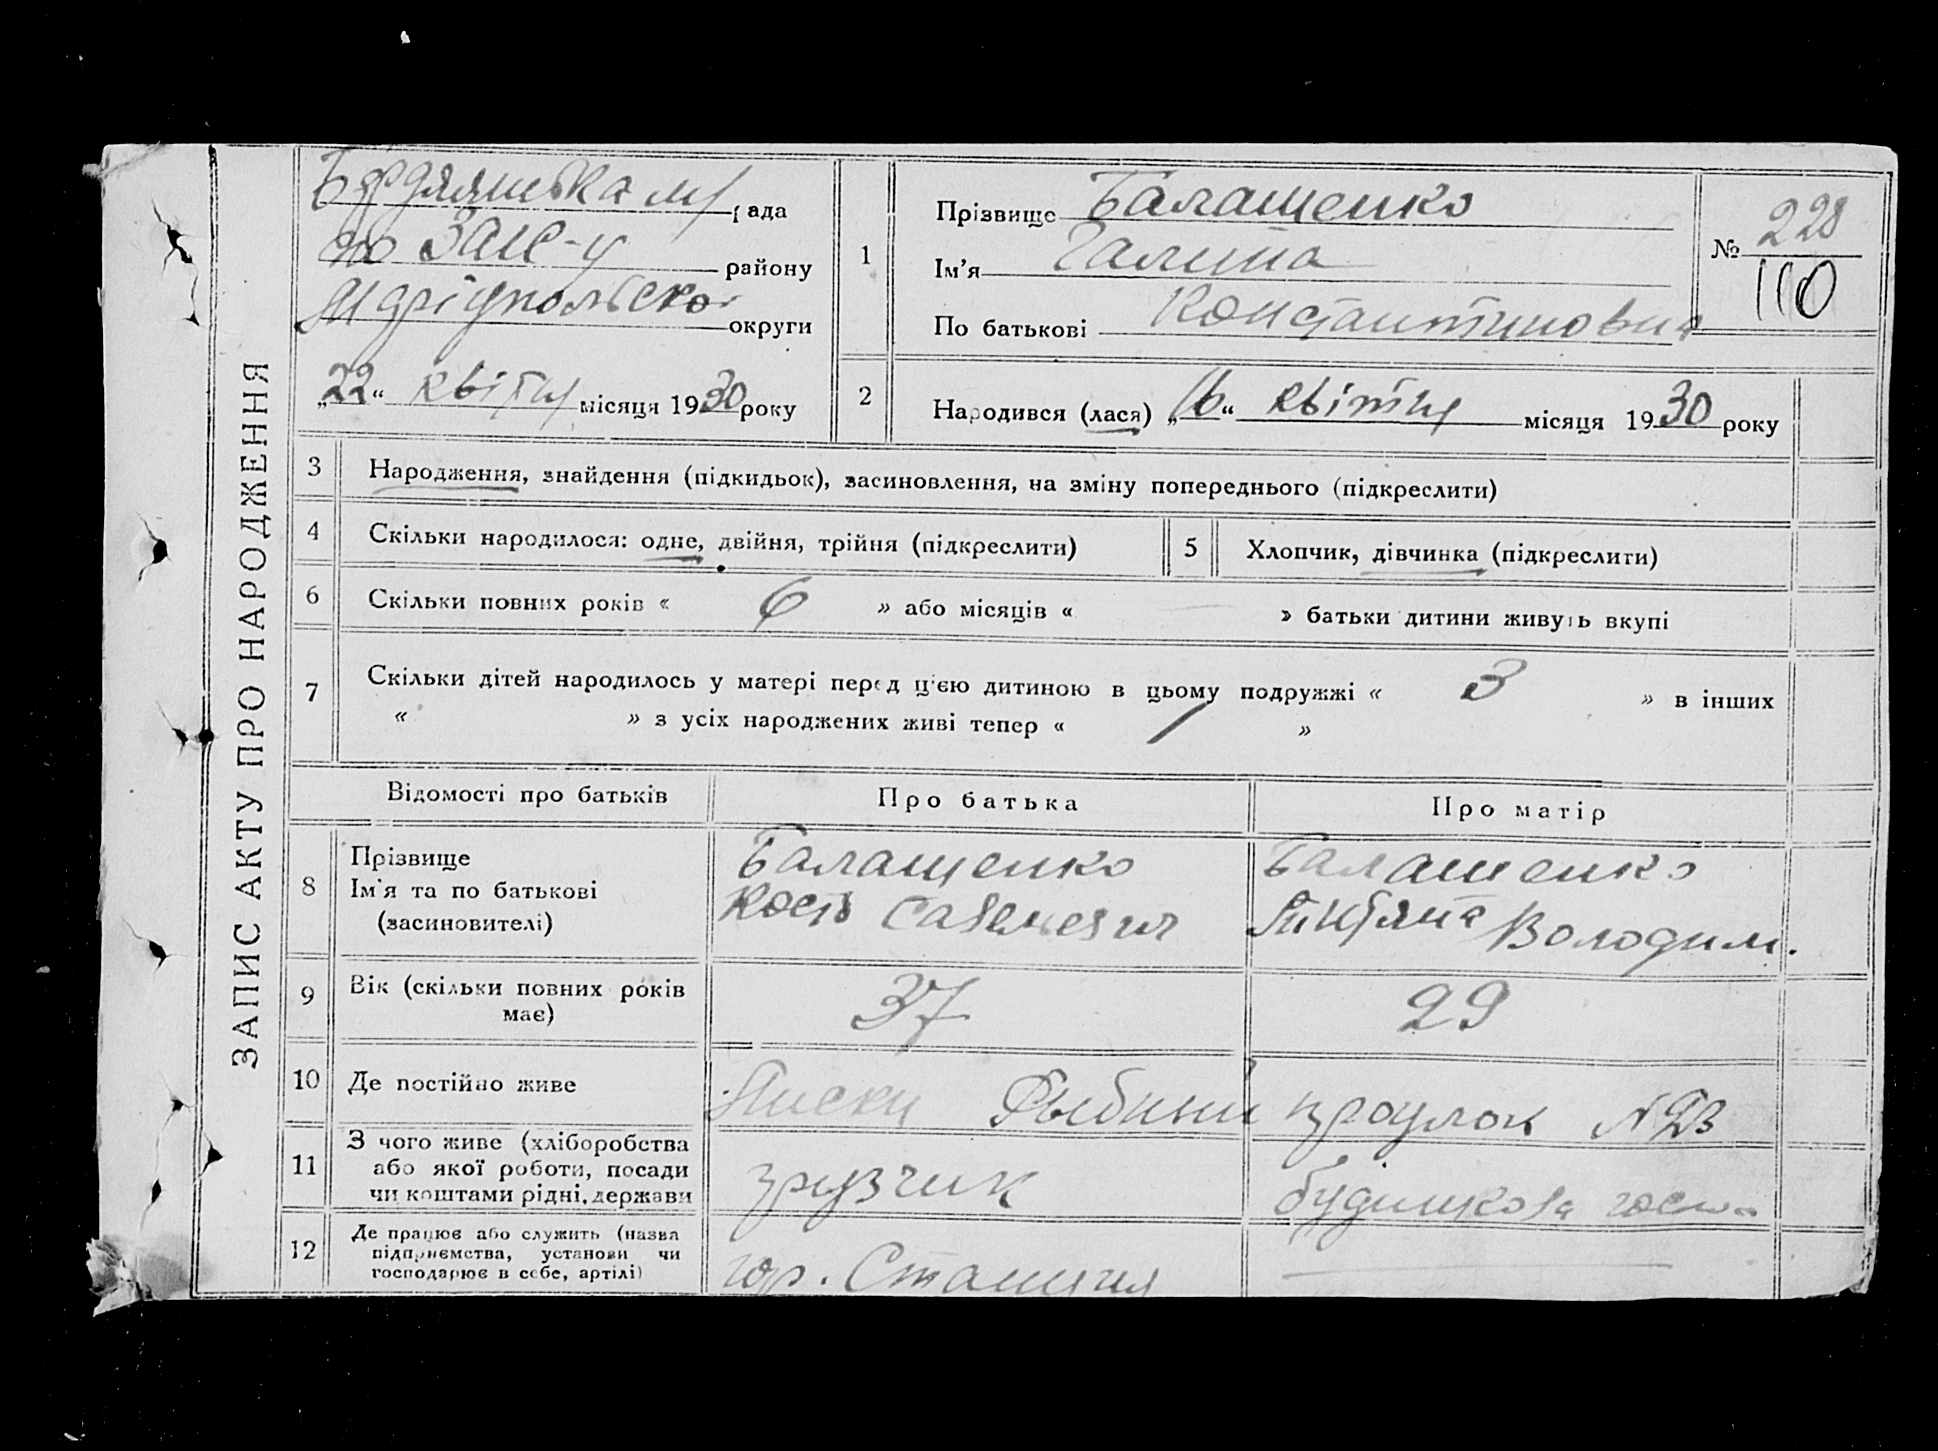 ЗАПИС АКТУ ПРО НАРОДЖЕННЯ
Бердянська м/рада
по ЗАГС-у району
Маріупольсько округи
„22“ квітня місяця 1930 року
1
Прізвище Балашенко
Ім'я Галина
По батькові Константиновна
№ 228
110
2
Народився (лася) „16“ квітня місяця 1930 року
3 Народження, знайдення (підкидьок), засиновлення, на зміну попереднього (підкреслити)
4 Скільки народилося: одне, двійня, трійня (підкреслити)
5 Хлопчик, дівчинка (підкреслити)
6 Скільки повних років « 6 » або місяців « » батьки дитини живуть вкупі
7 Скільки дітей народилось у матері перед цією дитиною в цьому подружжі « 3 » в інших
« » з усіх народжених живі тепер « 1 »
Відомості про батьків Про батька Про матір
8 Прізвище
Ім'я та по батькові
(засиновителі)
Балашенко
Кость
Балашенко
Володим.
9 Вік (скільки повних років
має)
37
29
10 Де постійно живе
Лиски Рыбний проулок N 23
11 З чого живе (хліборобства
або якої роботи, посади
чи коштами рідні, держави
грузчик
будинкова госп.
12 Де працює або служить (назва
підприємства, установи чи
господарює в себе, артілі)
гор. Станция